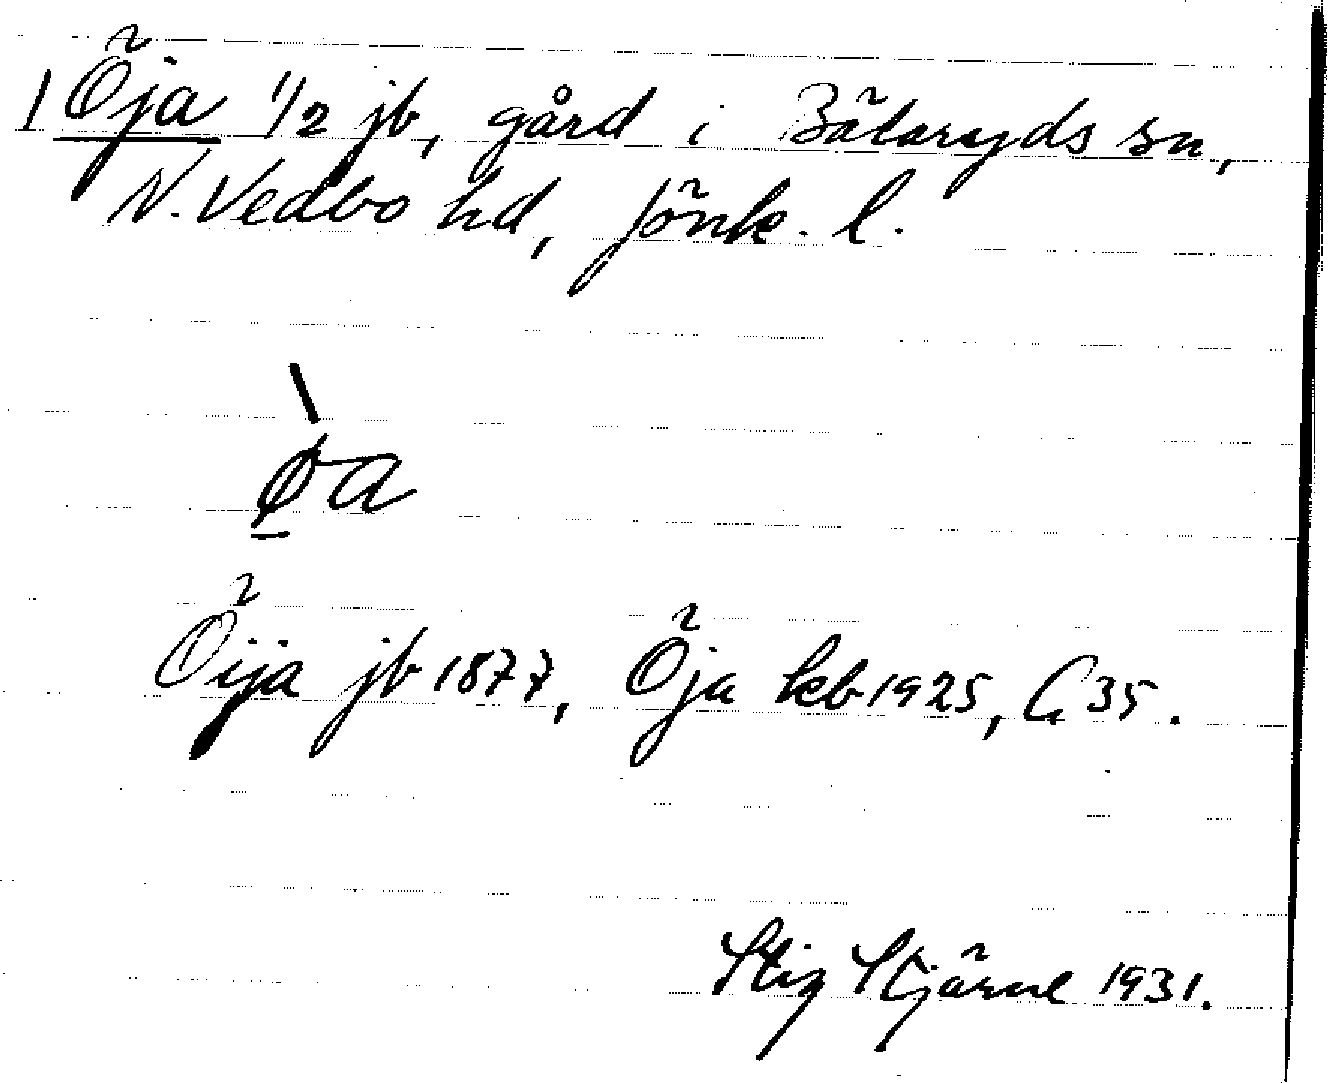 1 Öja 1/2 jb, gård i Bälaryds sn,
N. Vedbo hd, Jönk. l.
ø̱̀a
Öija jb 1877, Öja kb 1925, G 35.
Stig Stjärne 1931.